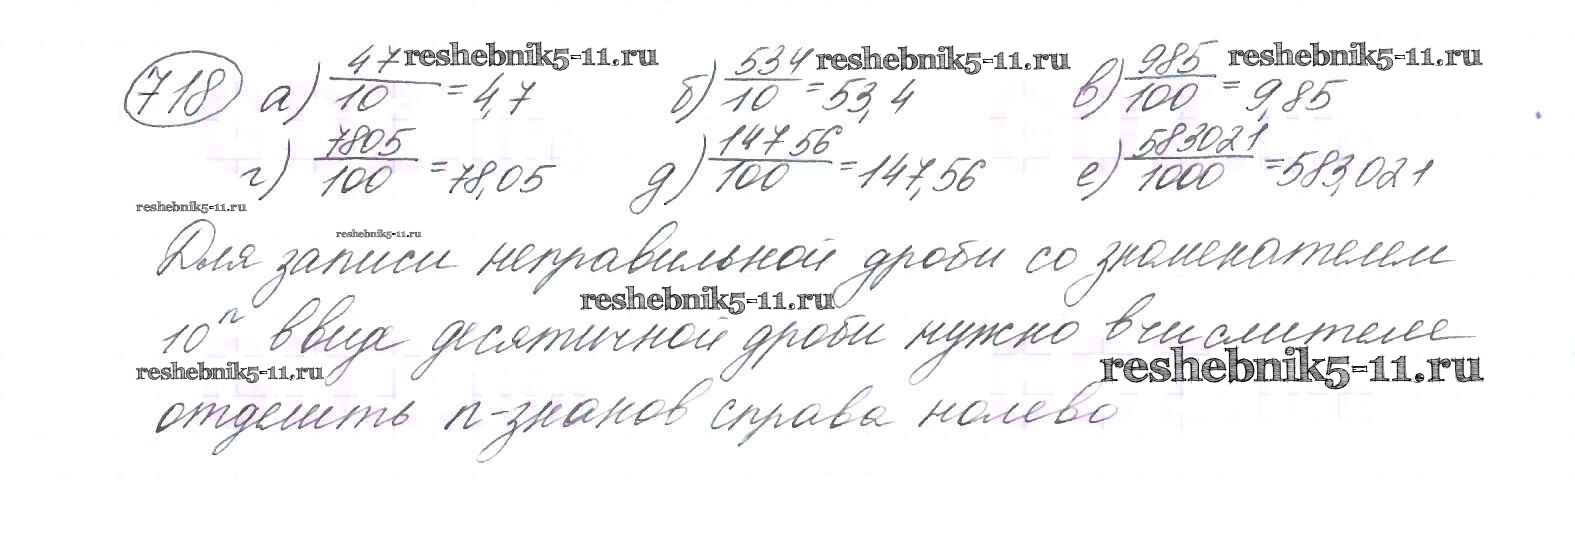 718 а) 47/10 = 4,7 б) 534/10 = 53,4 в) 985/100 = 9,85
г) 7805/100 = 78,05 д) 14756/100 = 147,56 е) 583021/1000 = 583,021
Для записи неправильной дроби со знаменателем
10ⁿ в виде десятичной дроби нужно в числителе
отделить n-знаков справа налево
reshebnik5-11.ru
reshebnik5-11.ru
reshebnik5-11.ru
reshebnik5-11.ru
reshebnik5-11.ru
reshebnik5-11.ru
reshebnik5-11.ru
reshebnik5-11.ru